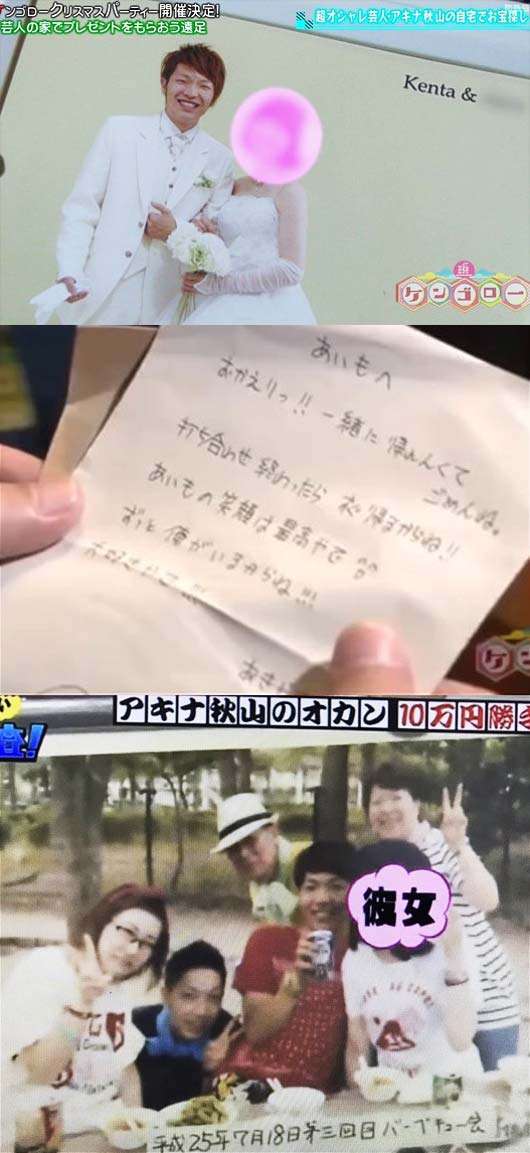 ケンゴロークリスマスパーティー開催決定!
芸人の家でプレゼントをもらおう遠足
超オシャレ芸人アキナ秋山の自宅でお宝探し
Kenta &
ケンゴロー
あいもへ
おかえりっ!! 一緒に帰れんくて
ごめんね。
打ち合わせ終わったら すぐ帰るからね!!
あいもの笑顔は最高やで
ずっと俺がいるからね!!!
ケ
アキナ秋山のオカン 10万円勝
彼女
平成25年7月18日第三回目バーベキュー会